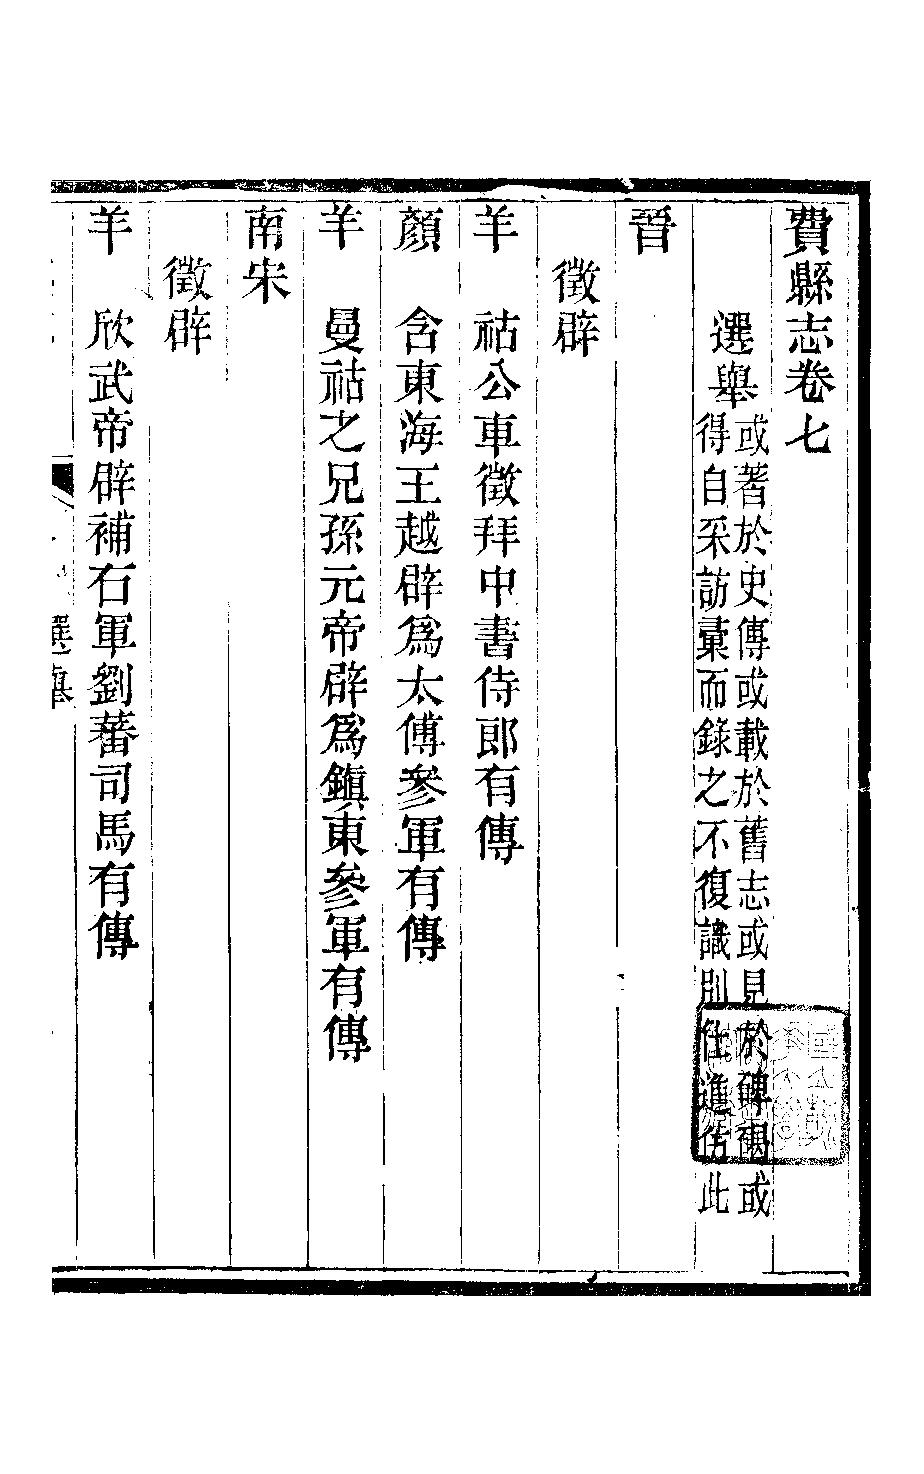 費縣志卷七
選舉
或著於史傳或載於舊志或見於碑碣或
得自采訪彙而録之不復識別仕進仿此
晉
徵辟
羊　祜公車徵拜中書侍郎有傳
顏　含東海王越辟爲太傅參軍有傳
羊　曼祜之兄孫元帝辟爲鎮東參軍有傳
南宋
徵辟
羊　欣武帝辟補右軍劉蕃司馬有傳
選舉